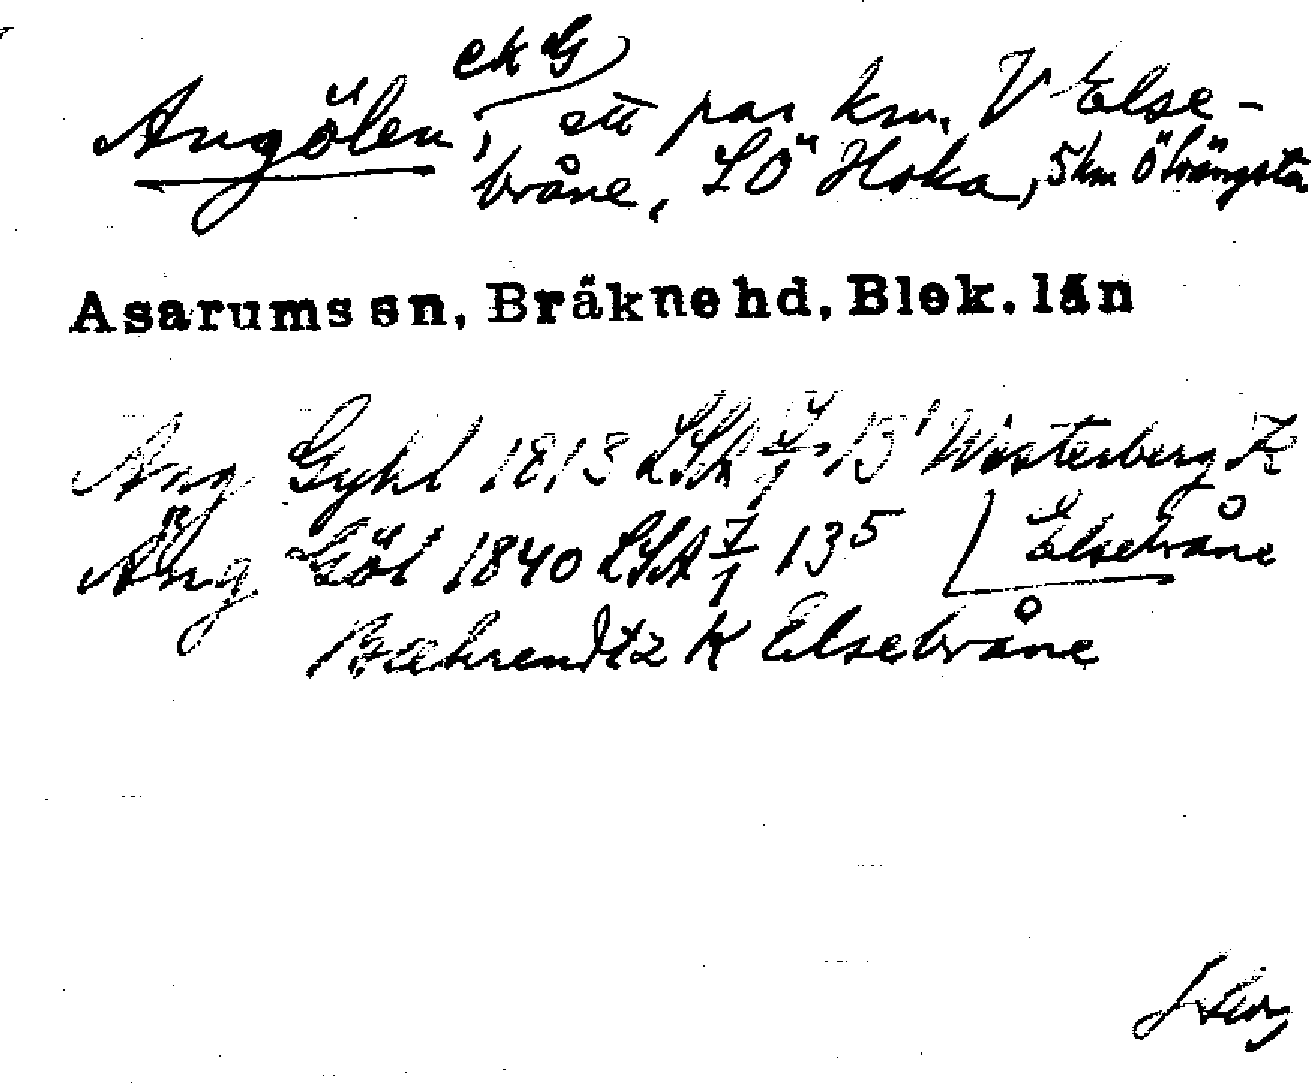 ek G
Angölen, ett par km. V Else-
bråne, SÖ Hoka, 5 km Ö Svängsta
Asarums sn, Bräkne hd, Blek. län
Ang Gyhl 1813 LSA 13¹ Westerberg K
Äng Göl 1840 LSA 7/1 13⁵ Elsebråne
Bæhrendtz K Elsebråne